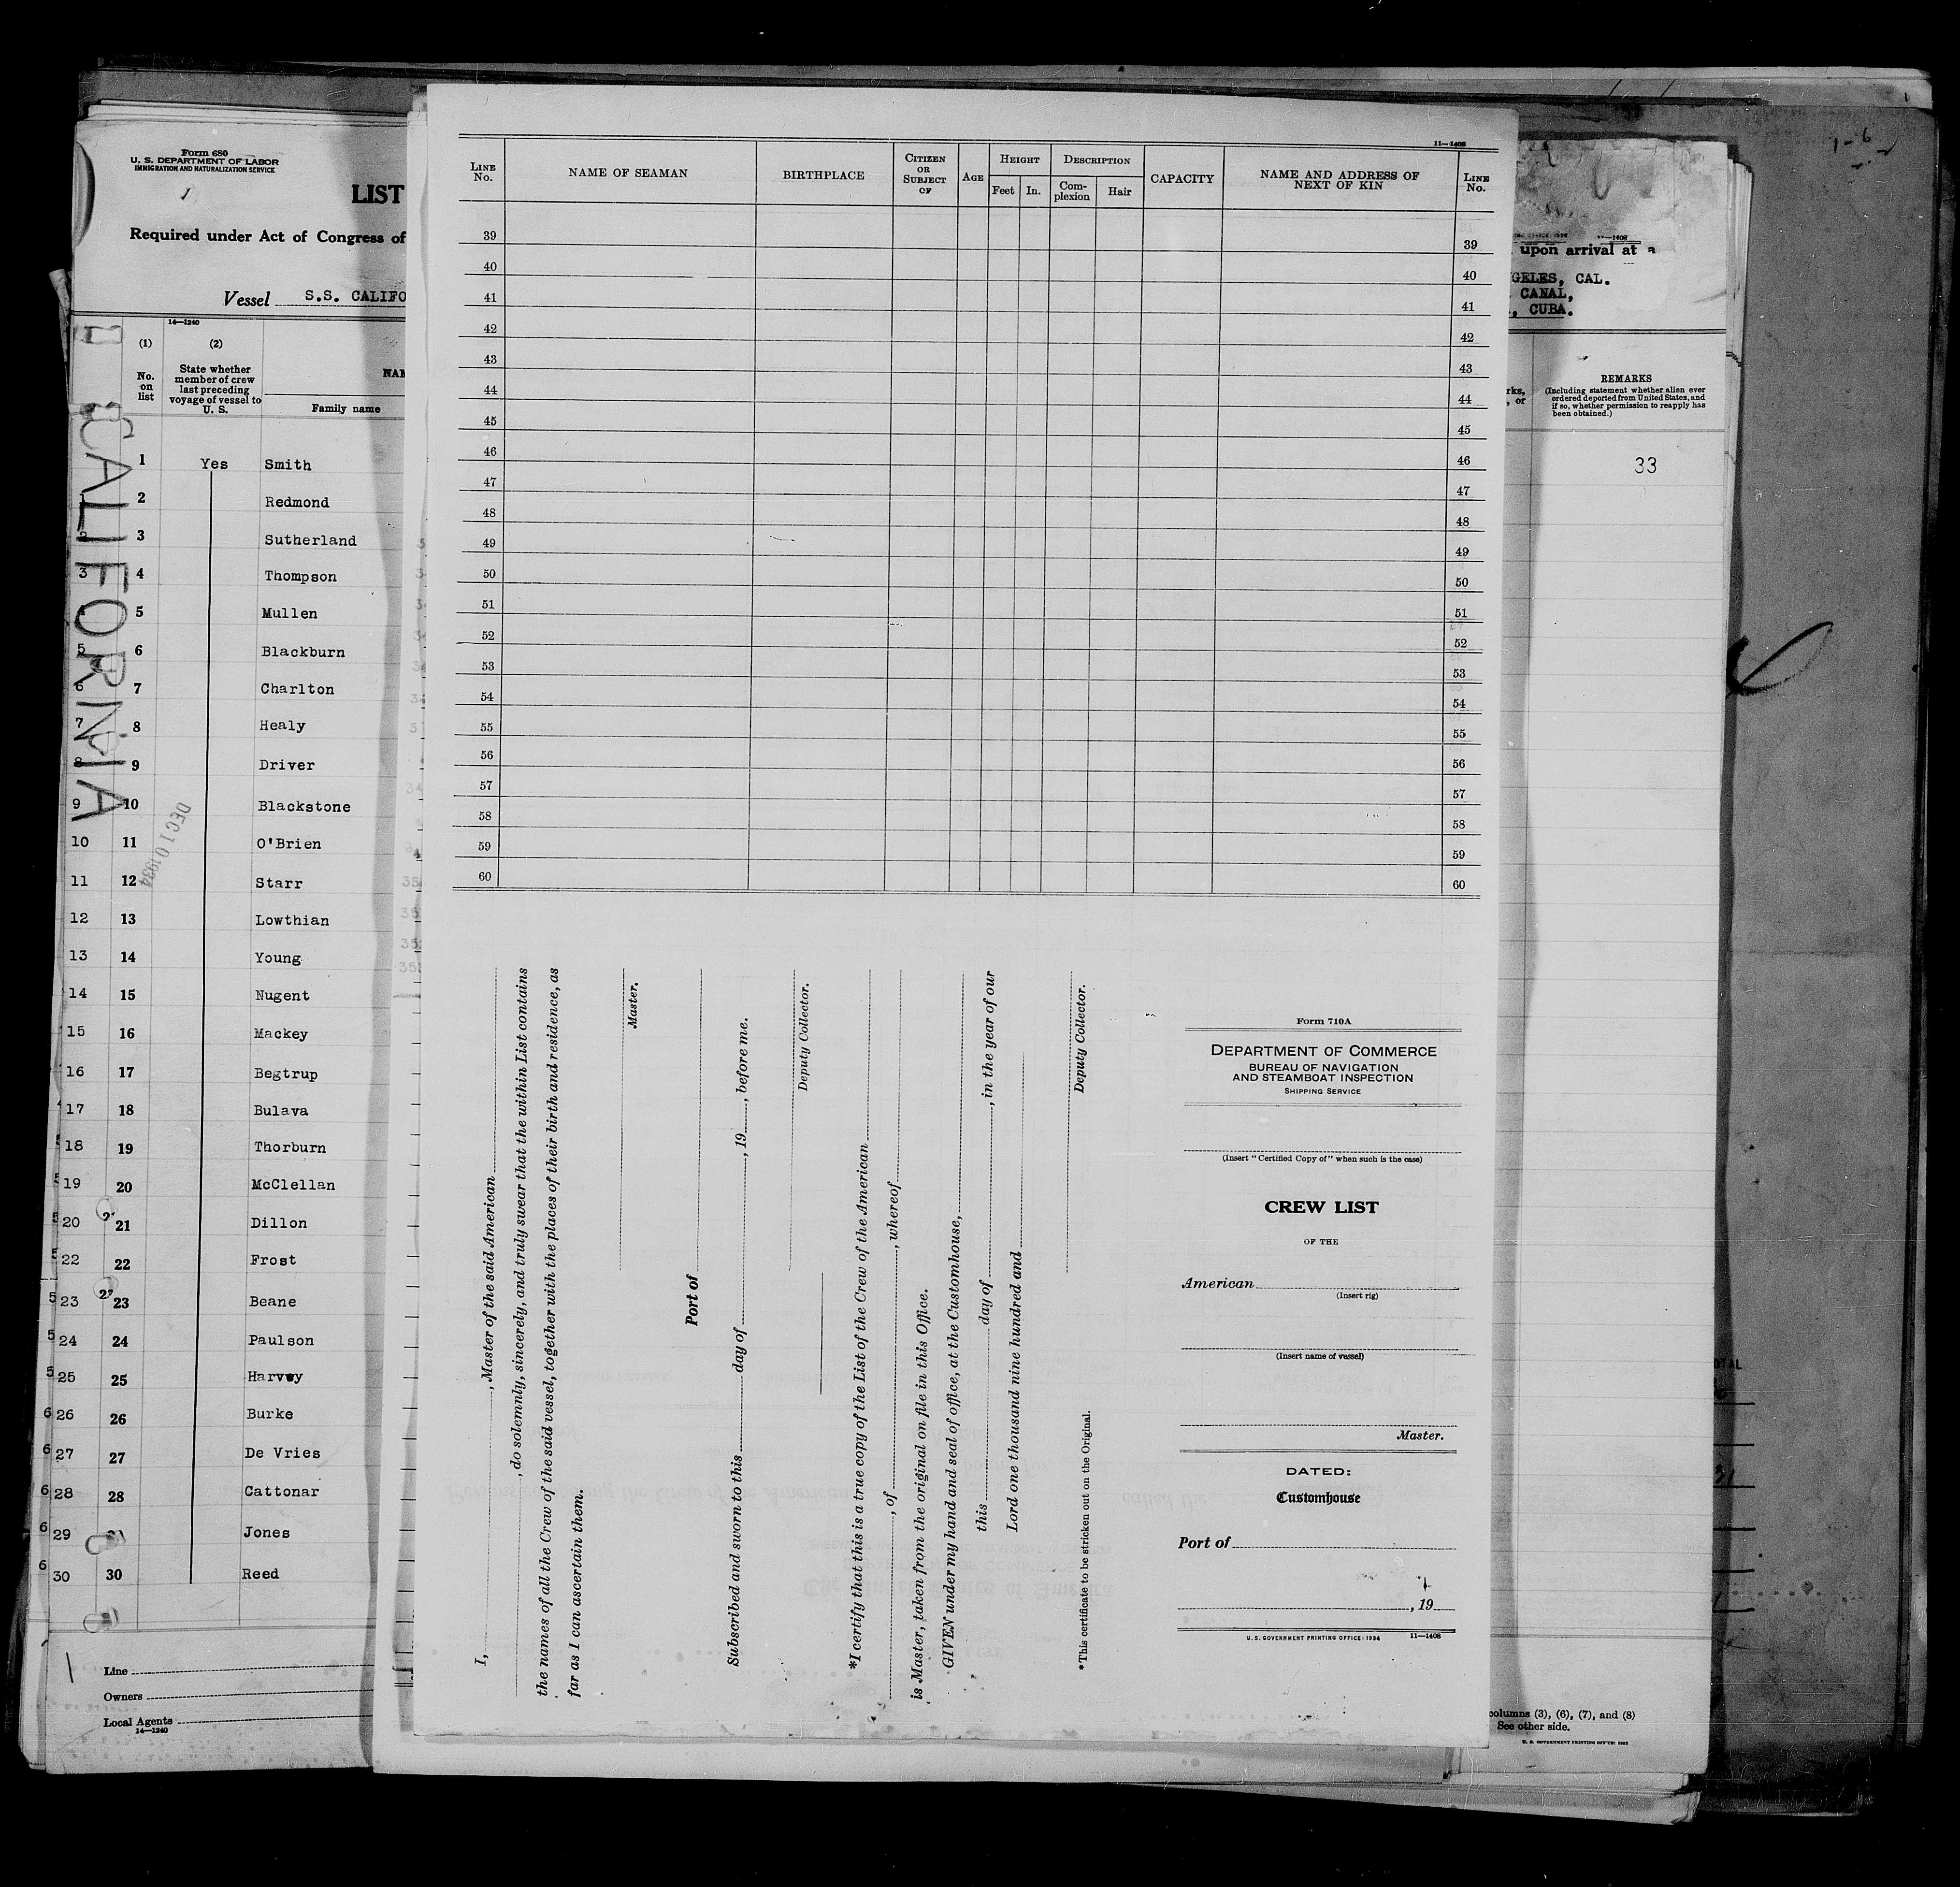 Form 680
U. S. DEPARTMENT OF LABOR
IMMIGRATION AND NATURALIZATION SERVICE
LIST
Required under Act of Congress of
Vessel S.S. CALIFO
14—1240
(1) (2)
No. on list
State whether member of crew last preceding voyage of vessel to U. S.
Family name
CALIFORNIA
DEC 10 1934
1 Yes Smith
2 Redmond
2 3 Sutherland
3 4 Thompson
4 5 Mullen
5 6 Blackburn
6 7 Charlton
7 8 Healy
8 9 Driver
9 10 Blackstone
10 11 O'Brien
11 12 Starr
12 13 Lowthian
13 14 Young
14 15 Nugent
15 16 Mackey
16 17 Begtrup
17 18 Bulava
18 19 Thorburn
19 20 McClellan
20 21 Dillon
22 22 Frost
23 23 Beane
24 24 Paulson
25 25 Harvey
26 26 Burke
27 27 De Vries
28 28 Cattonar
29 Jones
30 30 Reed
Line
Owners
Local Agents
14—1240
11—1408
LINE No. NAME OF SEAMAN BIRTHPLACE CITIZEN OR SUBJECT OF AGE HEIGHT Feet In. DESCRIPTION Complexion Hair CAPACITY NAME AND ADDRESS OF NEXT OF KIN LINE No.
39 39
40 40
41 41
42 42
43 43
44 44
45 45
46 46
47 47
48 48
49 49
50 50
51 51
52 52
53 53
54 54
55 55
56 56
57 57
58 58
59 59
60 60
I, , Master of the said American
, do solemnly, sincerely, and truly swear that the within List contains
the names of all the Crew of the said vessel, together with the places of their birth and residence, as
far as I can ascertain them.
Master.
Port of
Subscribed and sworn to this day of , 19 , before me.
Deputy Collector.
*I certify that this is a true copy of the List of the Crew of the American
, of , whereof
is Master, taken from the original on file in this Office.
GIVEN under my hand and seal of office, at the Customhouse,
this day of , in the year of our
Lord one thousand nine hundred and
Deputy Collector.
*This certificate to be stricken out on the Original.
Form 710A
DEPARTMENT OF COMMERCE
BUREAU OF NAVIGATION
AND STEAMBOAT INSPECTION
SHIPPING SERVICE
(Insert "Certified Copy of" when such is the case)
CREW LIST
OF THE
American
(Insert rig)
(Insert name of vessel)
Master.
DATED:
Customhouse
Port of
, 19
U. S. GOVERNMENT PRINTING OFFICE: 1934 11—1408
upon arrival at a
GELES, CAL.
CANAL,
, CUBA.
REMARKS
(Including statement whether alien ever
ordered deported from United States, and
if so, whether permission to reapply has
been obtained.)
33
columns (3), (6), (7), and (8)
See other side.